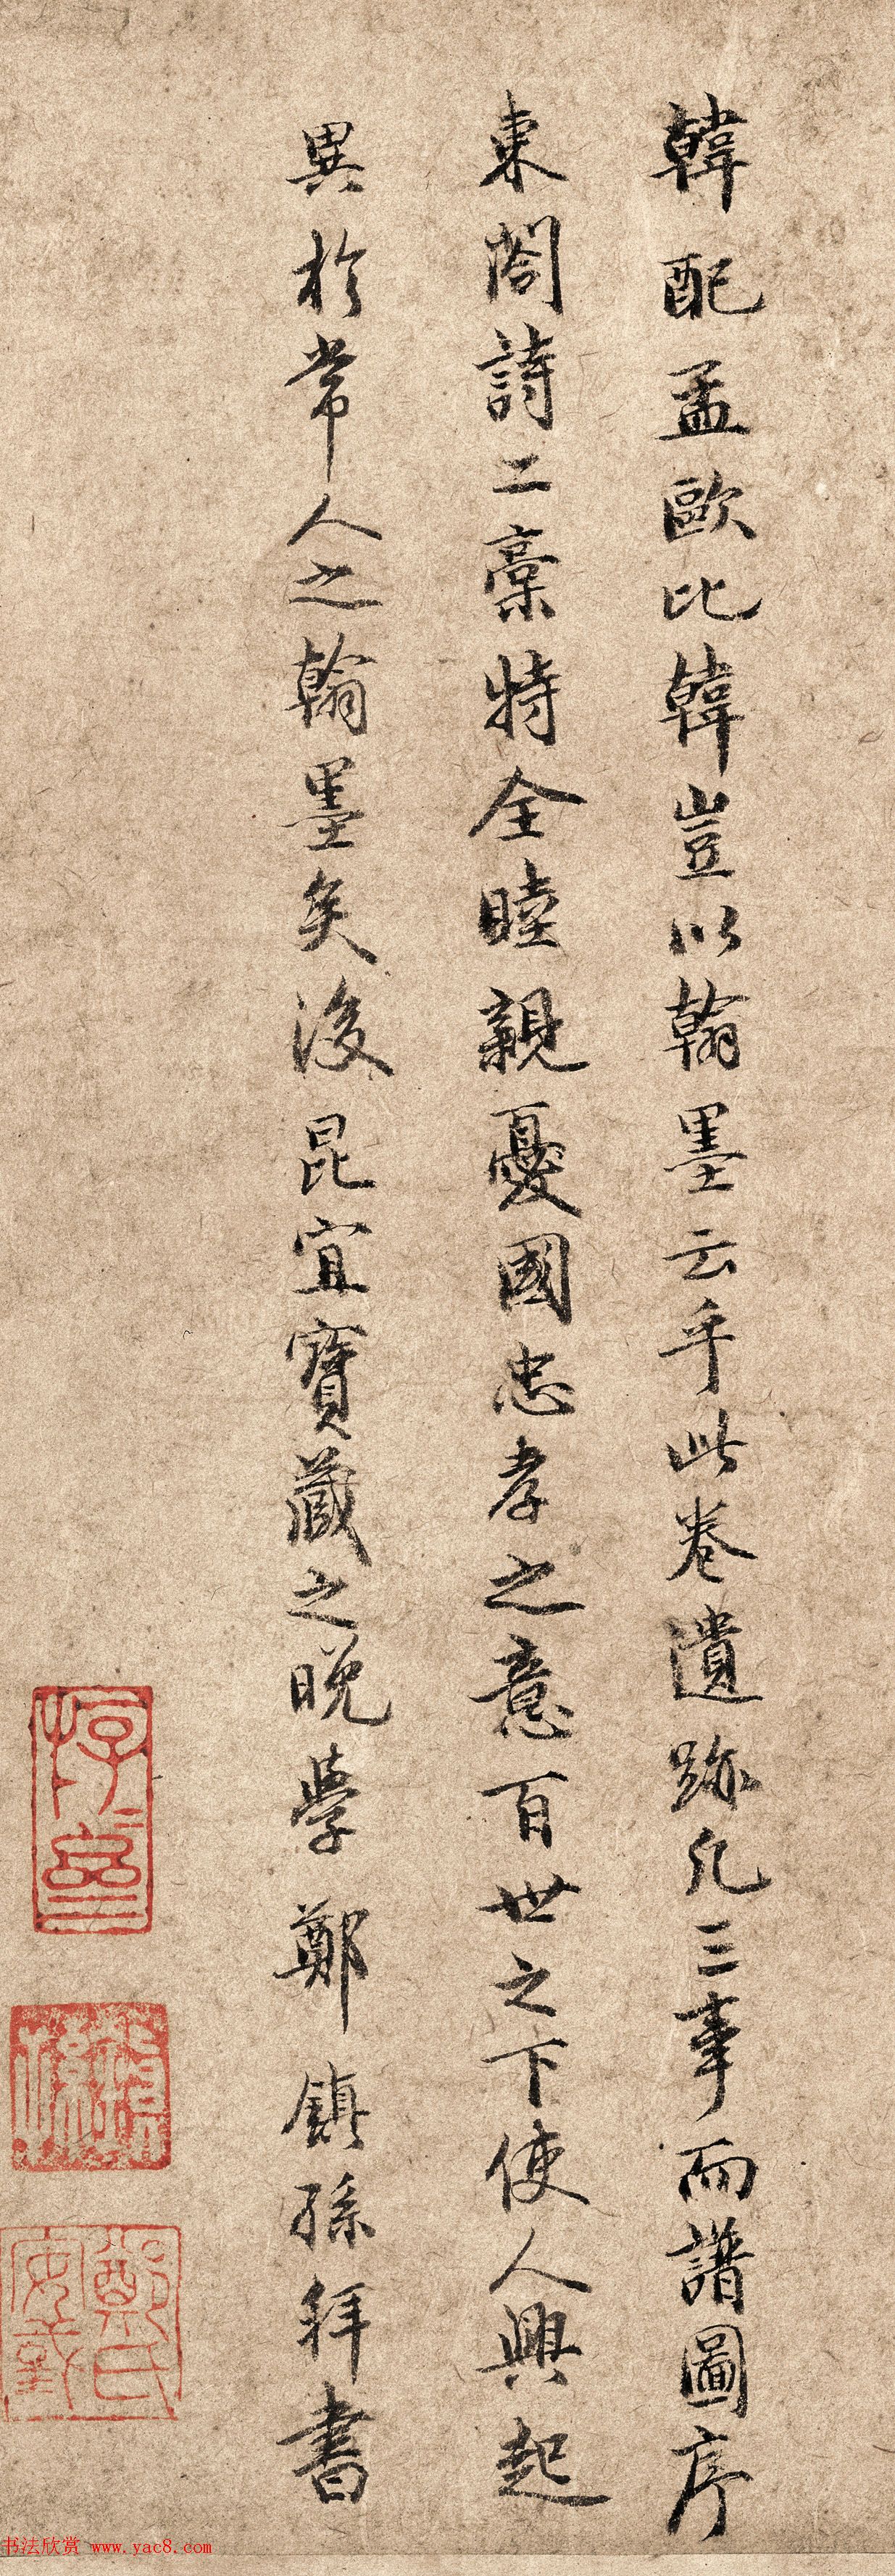 韓配孟歐比韓豈以翰墨云乎此卷遺跡凡三事而譜圖序
東閤詩二稾特全睦親憂國忠孝之意百世之下使人興起
異於常人之翰墨矣後昆宜寶藏之晚學鄭鎮孫拜書
鄭氏
书法欣赏 www.yac8.com